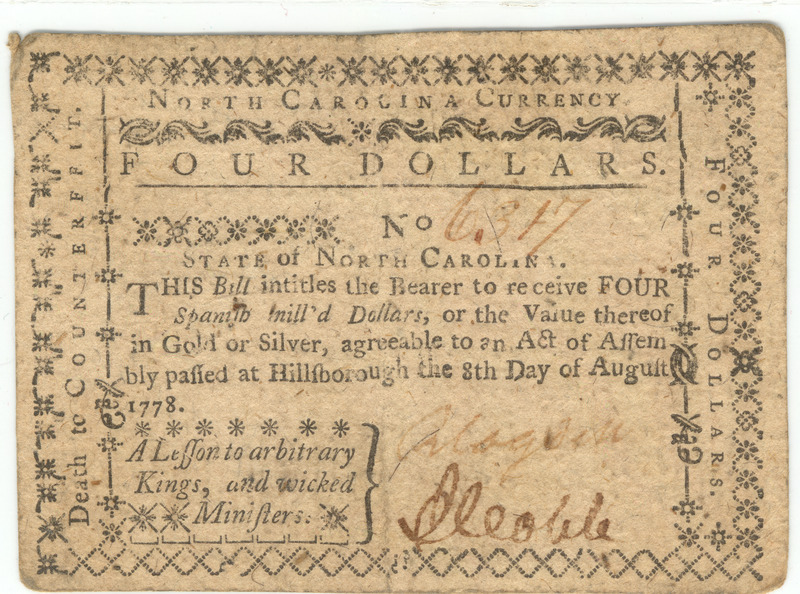 NORTH CAROLINA CURRENCY
FOUR DOLLARS.
No 6,317
STATE of NORTH CAROLINA.
THIS Bill intitles the Bearer to receive FOUR
Spaniſh mill'd Dollars, or the Value thereof
in Gold or Silver, agreeable to an Act of Aſſem
bly paſſed at Hillſborough the 8th Day of Auguſt
1778.
A Leſſon to arbitrary
Kings, and wicked
Miniſters.
Death to COUNTERFFIT.
FOUR DOLLARS.